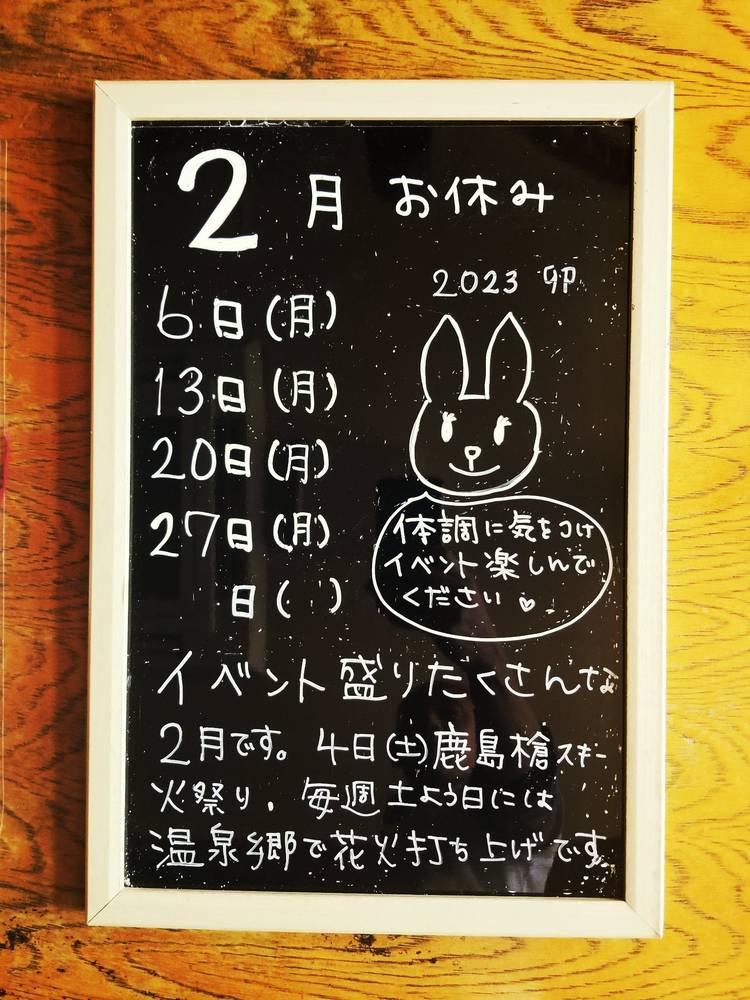 2月 お休み
2023 卯
6日(月)
13日(月)
20日(月)
27日(月)
日( )
体調に気をつけ
イベント楽しんで
ください♡
イベント盛りだくさんな
2月です。4日(土)鹿島槍スキー
火祭り、毎週土よう日には
温泉郷で花火打ち上げです。